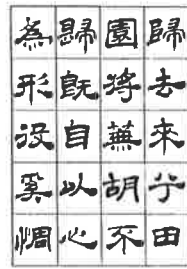 歸去來兮田
園將蕪胡不
歸既自以心
為形役奚惆